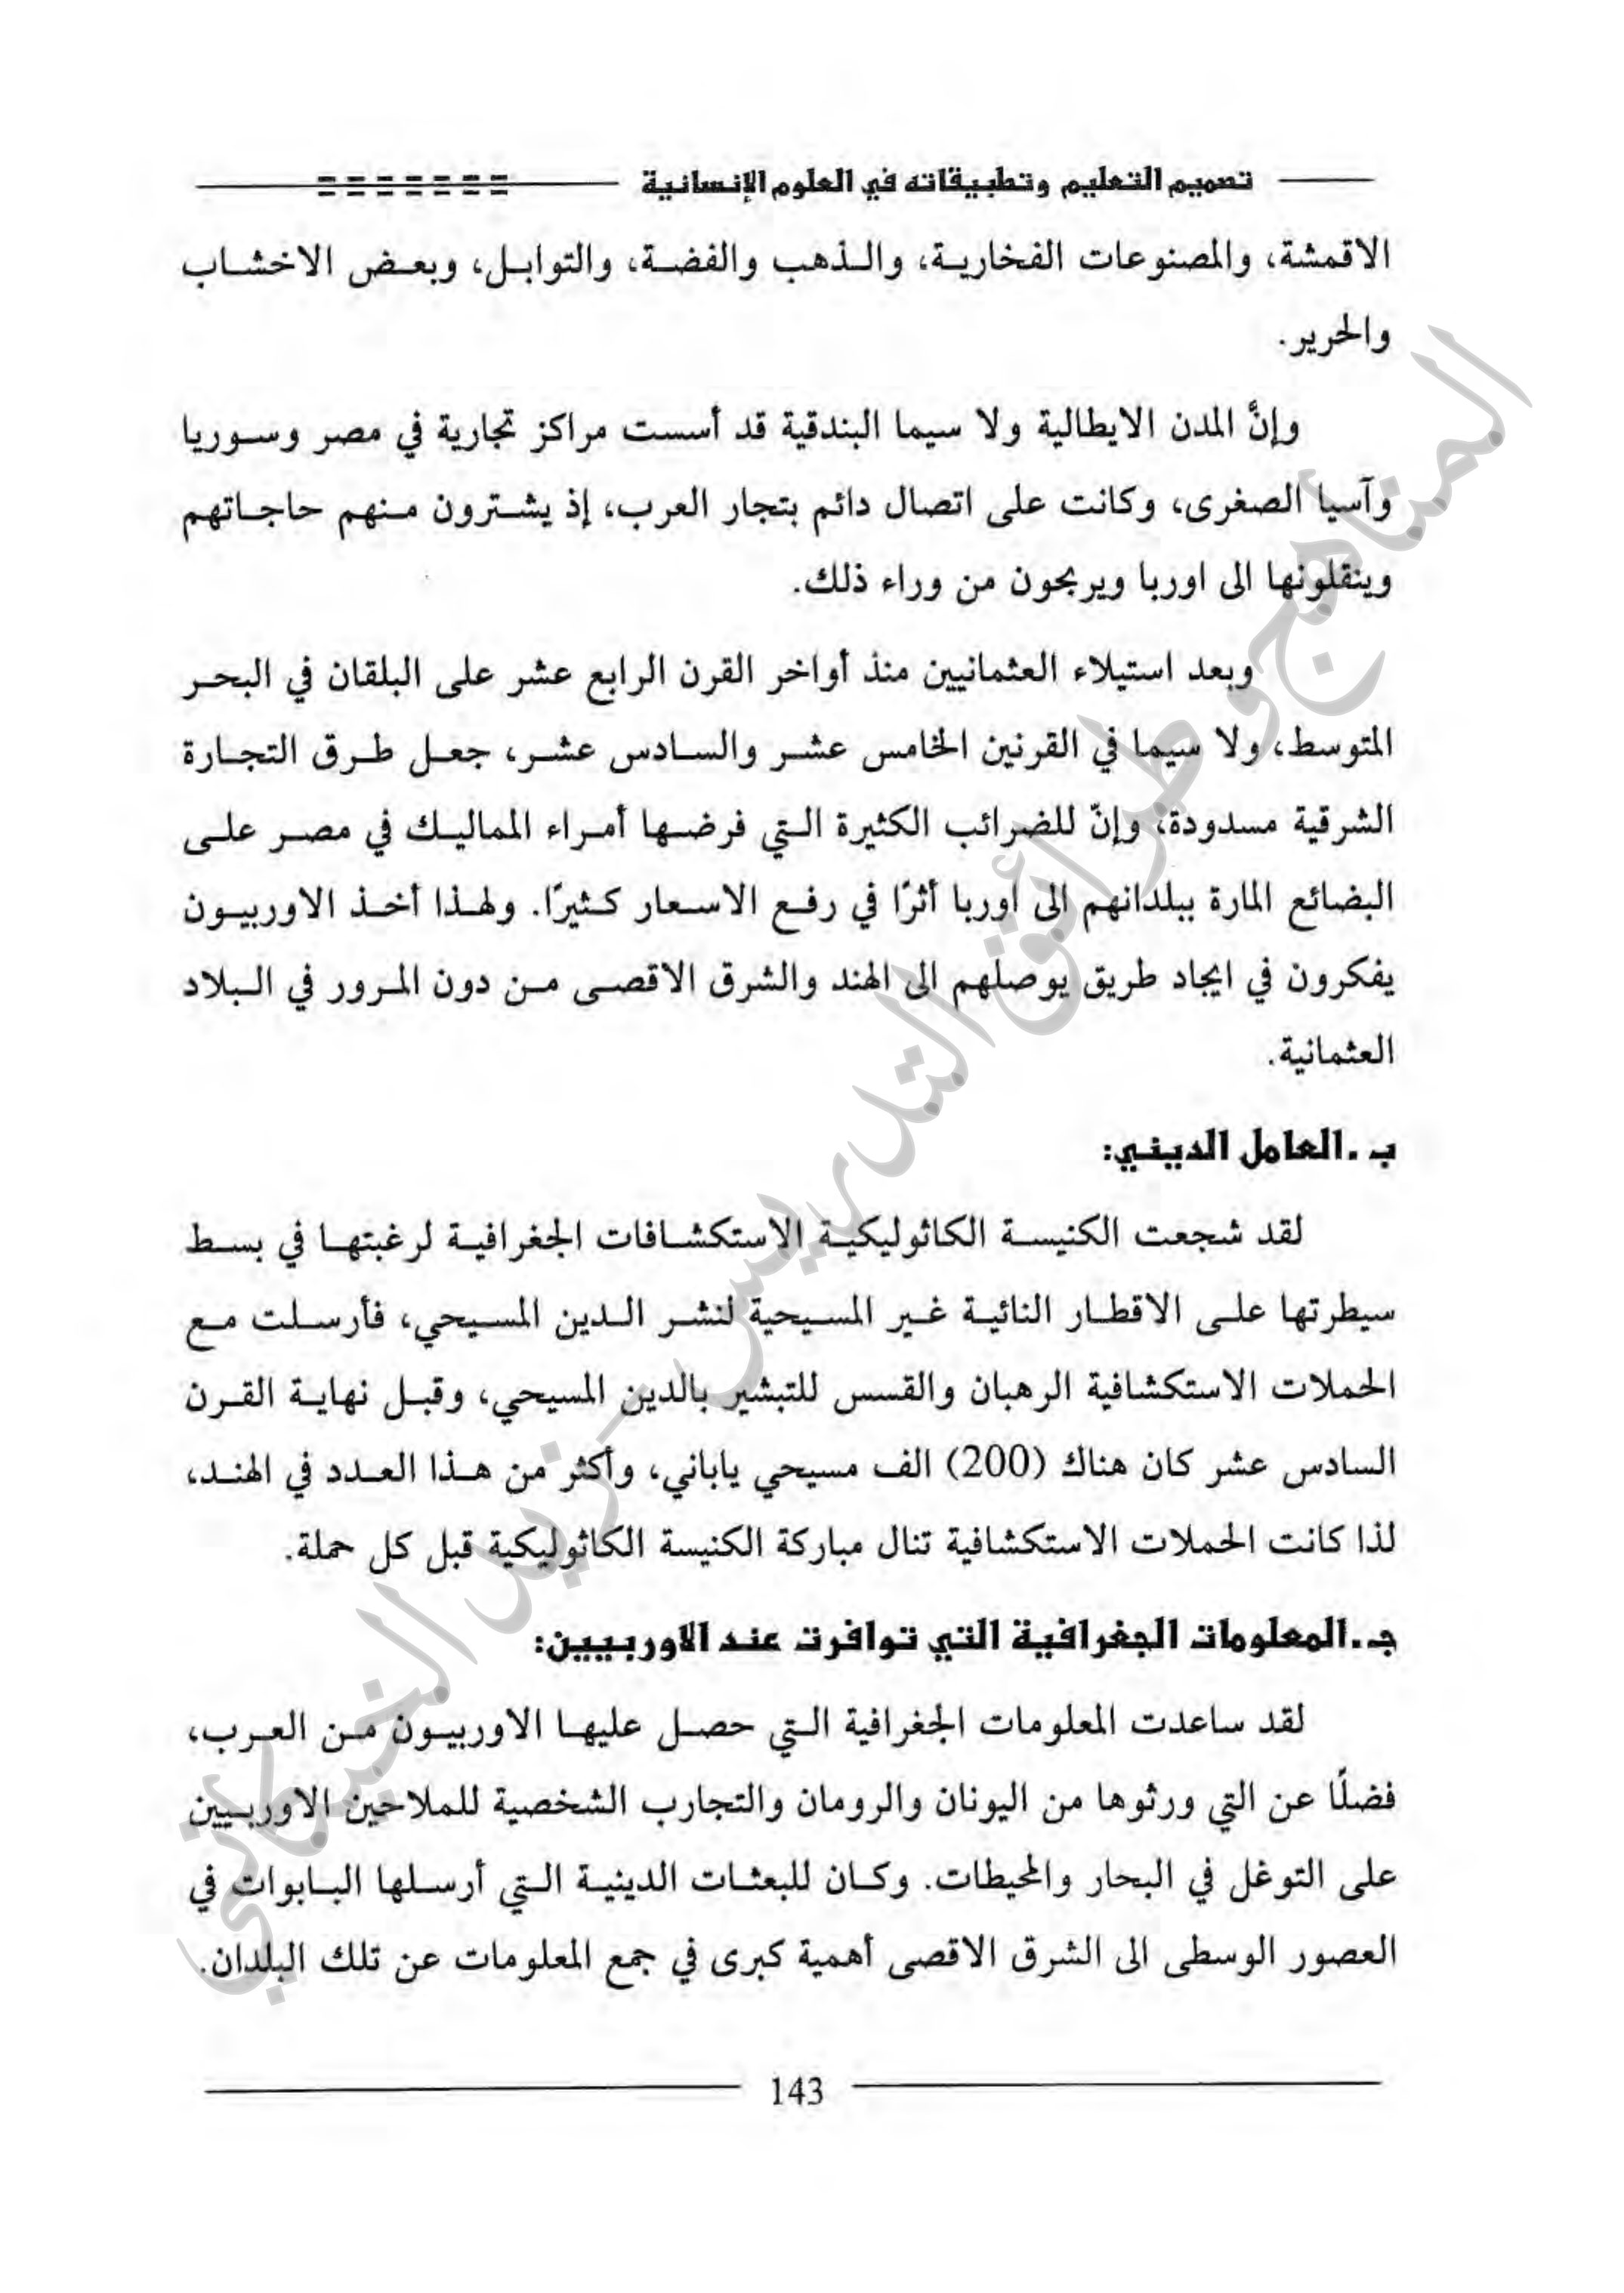 تصميم التعليم وتطبيقاته في العلوم الإنسانية
الاقمشة، والمصنوعات الفخارية، والذهب والفضة، والتوابل، وبعض الاخشاب
والحرير.
وإنَّ المدن الايطالية ولا سيما البندقية قد أسست مراكز تجارية في مصر وسوريا
وآسيا الصغرى، وكانت على اتصال دائم بتجار العرب، إذ يشترون منهم حاجاتهم
وينقلونها الى اوربا ويربحون من وراء ذلك.
وبعد استيلاء العثمانيين منذ أواخر القرن الرابع عشر على البلقان في البحر
المتوسط، ولا سيما في القرنين الخامس عشر والسادس عشر، جعل طرق التجارة
الشرقية مسدودة؛ وإنّ للضرائب الكثيرة التي فرضها أمراء المماليك في مصر على
البضائع المارة ببلدانهم إلى اوربا أثرًا في رفع الاسعار كثيرًا. ولهذا أخذ الاوربيون
يفكرون في ايجاد طريق يوصلهم الى الهند والشرق الاقصى من دون المرور في البلاد
العثمانية.
ب .العامل الديني:
لقد شجعت الكنيسة الكاثوليكية الاستكشافات الجغرافية لرغبتها في بسط
سيطرتها على الاقطار النائية غير المسيحية لنشر الدين المسيحي، فأرسلت مع
الحملات الاستكشافية الرهبان والقسس للتبشير بالدين المسيحي، وقبل نهاية القرن
السادس عشر كان هناك (200) الف مسيحي ياباني، وأكثر من هذا العدد في الهند،
لذا كانت الحملات الاستكشافية تنال مباركة الكنيسة الكاثوليكية قبل كل حملة.
جـ.المعلومات الجغرافية التي توافرت عند الاوربيين:
لقد ساعدت المعلومات الجغرافية التي حصل عليها الاوربيون من العرب،
فضلًا عن التي ورثوها من اليونان والرومان والتجارب الشخصية للملاحين الاوربيين
على التوغل في البحار والمحيطات. وكان للبعثات الدينية التي أرسلها البابوات في
العصور الوسطى الى الشرق الاقصى أهمية كبرى في جمع المعلومات عن تلك البلدان.
143
المناهج وطرائق التدريس - زيد الخيكاني